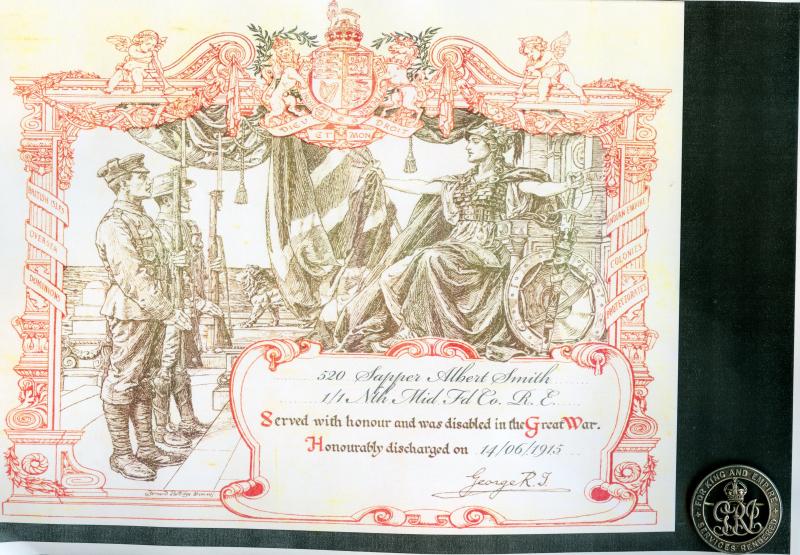 DIEU ET MON DROIT
BRITISH ISLES
OVERSEA
DOMINIONS
INDIAN EMPIRE
COLONIES
PROTECTORATES
520 Sapper Albert Smith
1/1 Nth Mid Fd Co. R. E.
Served with honour and was disabled in the Great War.
Honourably discharged on 14/06/1915
George R.I.
FOR KING AND EMPIRE
SERVICES RENDERED